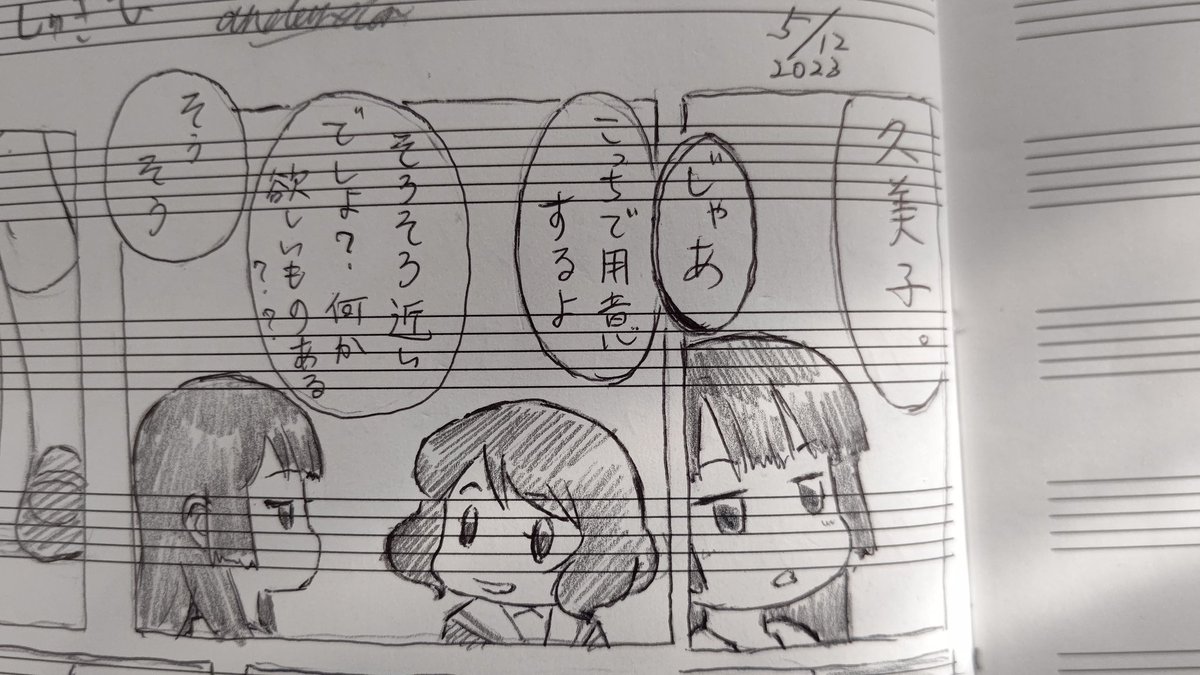 5/12
2023
久美子。
じゃあ
こっちで用意
するよ
そろそろ近い
でしょ?何か
欲しいものある
??
そう
そう